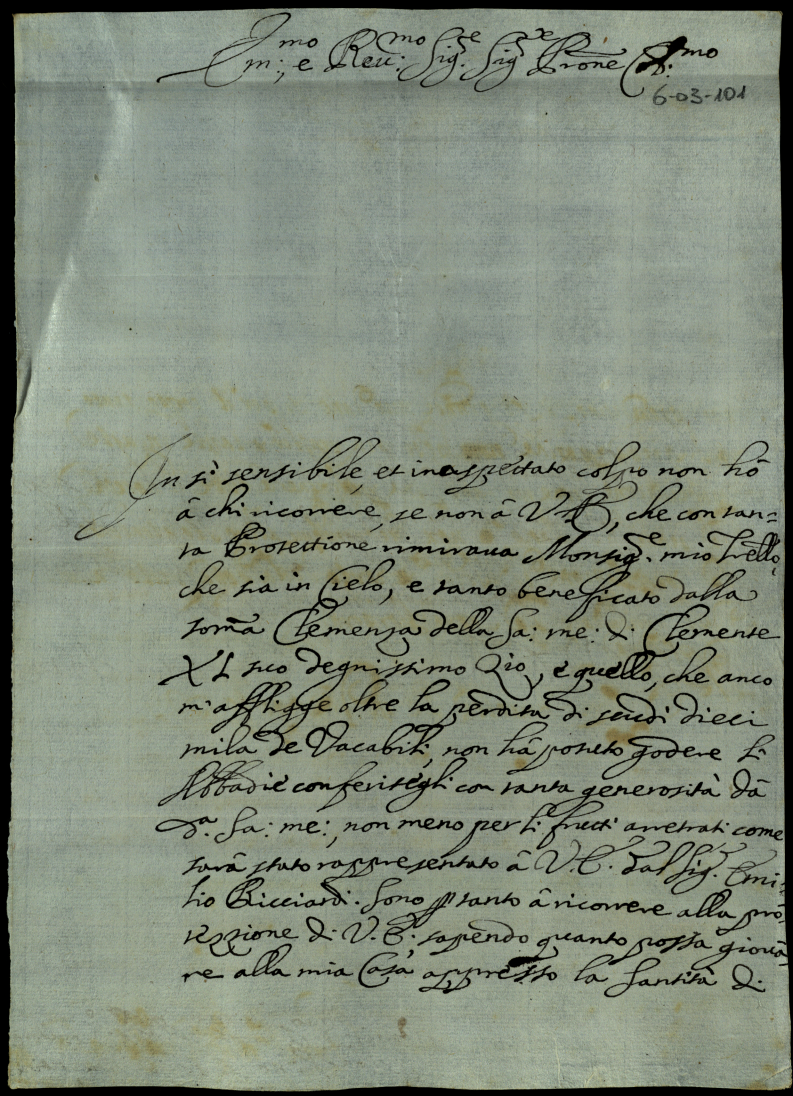 Em:mo, e Reu:mo Sig.re Sig.re Prōne Col:mo
6-03-101
In sì sensibile, et inaspettato colpo non hò
à chi ricorrere, se non à V.E., che con tan=
ta Protettione rimiraua Monsig.re mio Frello,
che sia in Cielo, e tanto beneficato dalla
som̃a Clemenza della Sa: me: di Clemente
XI suo degnissimo Zio, e quello, che anco
m'affligge oltre la perdita di scudi dieci
mila de Vacabili, non hà potuto godere li
Abbadie conferitegli con tanta generosità dà
d.a Sa: me:, non meno per li frutti arretrati come
sarà stato rappresentato à V.E. dal Sig.r Emi=
lio Ricciardi. Sono ꝑ tanto à ricorrere alla pro=
tezzione di V.E., sapendo quanto possa gioua=
re alla mia Casa appresso la Santità di